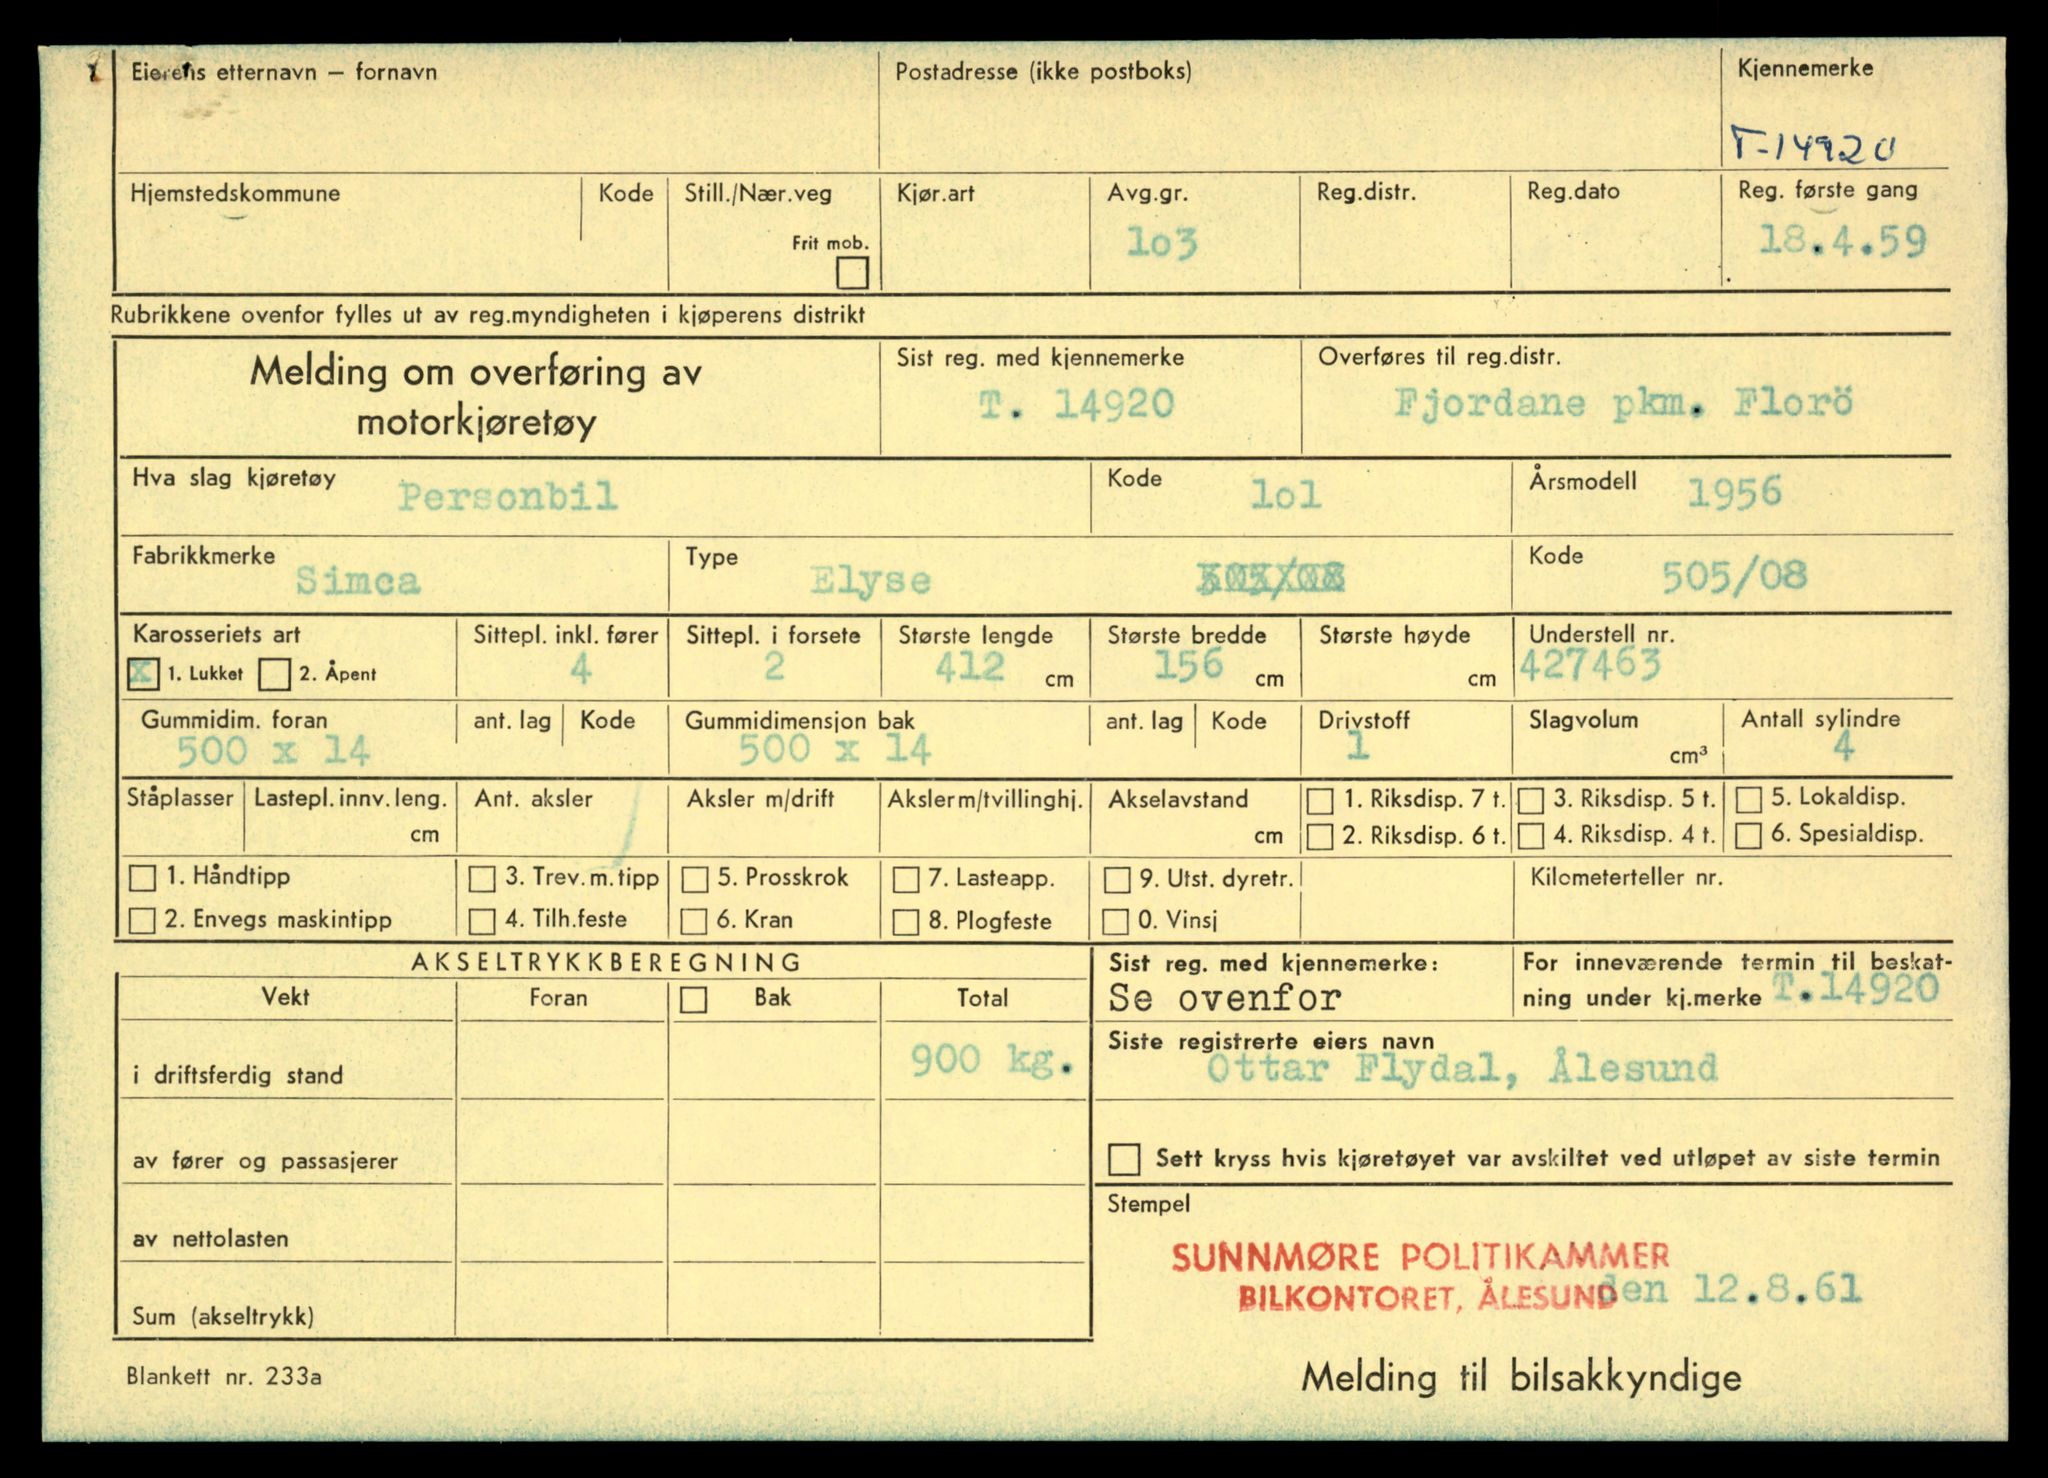 Eierens etternavn — fornavn
Postadresse (ikke postboks)
Kjennemerke
T-14920
Hjemstedskommune
Kode
Still./Nær.veg
Frit mob.
Kjør.art
Avg.gr.
lo3
Reg.distr.
Reg.dato
Reg. første gang
18.4.59
Rubrikkene ovenfor fylles ut av reg.myndigheten i kjøperens distrikt
Melding om overføring av
motorkjøretøy
Sist reg. med kjennemerke
T. 14920
Overføres til reg.distr.
Fjordane pkm. Florö
Hva slag kjøretøy
Personbil
Kode
lol
Årsmodell
1956
Fabrikkmerke
Simca
Type
Elyse
Kode
505/08
Karosseriets art
X 1. Lukket 2. Åpent
Sittepl. inkl. fører
4
Sittepl. i forsete
2
Største lengde
412 cm
Største bredde
156 cm
Største høyde
cm
Understell nr.
427463
Gummidim. foran
500 x 14
ant. lag
Kode
Gummidimensjon bak
500 x 14
ant. lag
Kode
Drivstoff
1
Slagvolum
cm³
Antall sylindre
4
Ståplasser
Lastepl. innv. leng.
cm
Ant. aksler
Aksler m/drift
Aksler m/tvillinghj.
Akselavstand
cm
1. Riksdisp. 7 t.
2. Riksdisp. 6 t.
3. Riksdisp. 5 t.
4. Riksdisp. 4 t.
5. Lokaldisp.
6. Spesialdisp.
1. Håndtipp
2. Envegs maskintipp
3. Trev. m. tipp
4. Tilh.feste
5. Prosskrok
6. Kran
7. Lasteapp.
8. Plogfeste
9. Utst. dyretr.
0. Vinsj
Kilometerteller nr.
AKSELTRYKKBEREGNING
Vekt
Foran
Bak
Total
i driftsferdig stand
900 kg.
av fører og passasjerer
av nettolasten
Sum (akseltrykk)
Sist reg. med kjennemerke:
Se ovenfor
For inneværende termin til beskat-
ning under kj.merke T.14920
Siste registrerte eiers navn
Ottar Flydal, Ålesund
Sett kryss hvis kjøretøyet var avskiltet ved utløpet av siste termin
Stempel
SUNNMØRE POLITIKAMMER
BILKONTORET, ÅLESUND den 12.8.61
Blankett nr. 233a
Melding til bilsakkyndige